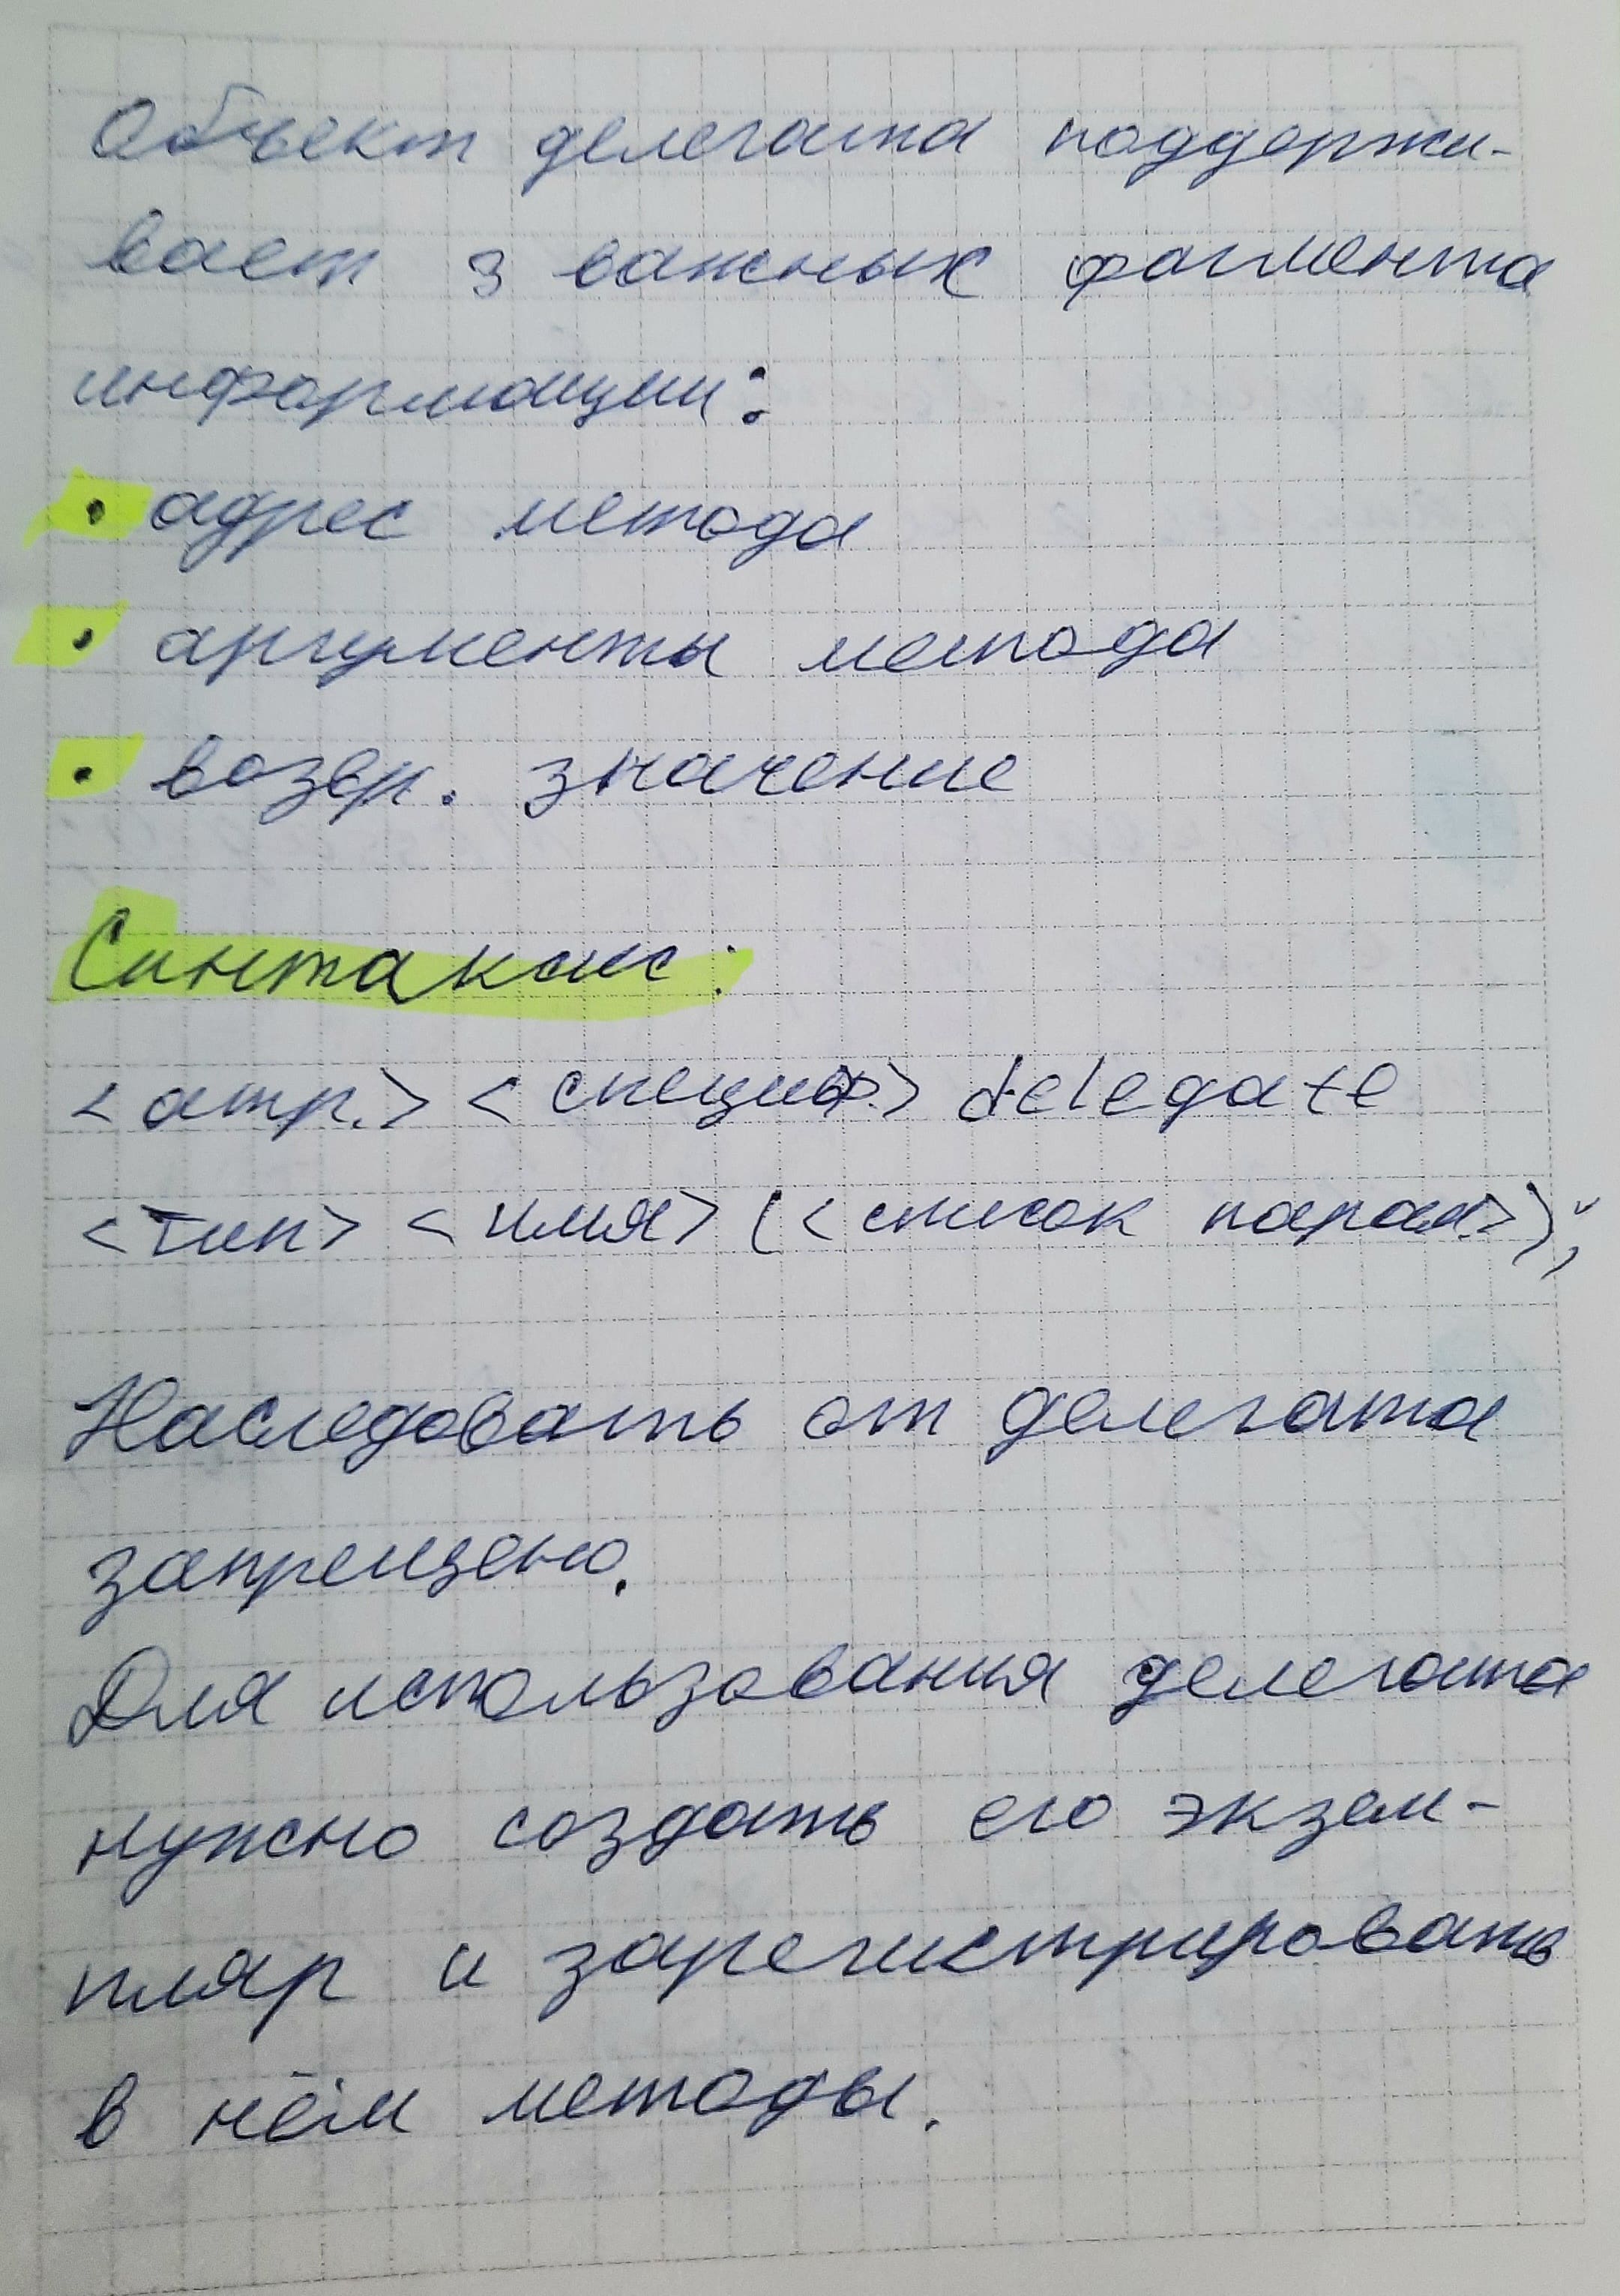 Объект делегата поддержи-
вает 3 важных фагмента
информации:
• адрес метода
• аргументы метода
• возвр. значение
Синтаксис:
<атр.> <специф.> delegate
<тип> <имя> (<список парам.>);
Наследовать от делегата
запрещено.
Для использования делегата
нужно создать его экзем-
пляр и зарегистрировать
в нём методы.